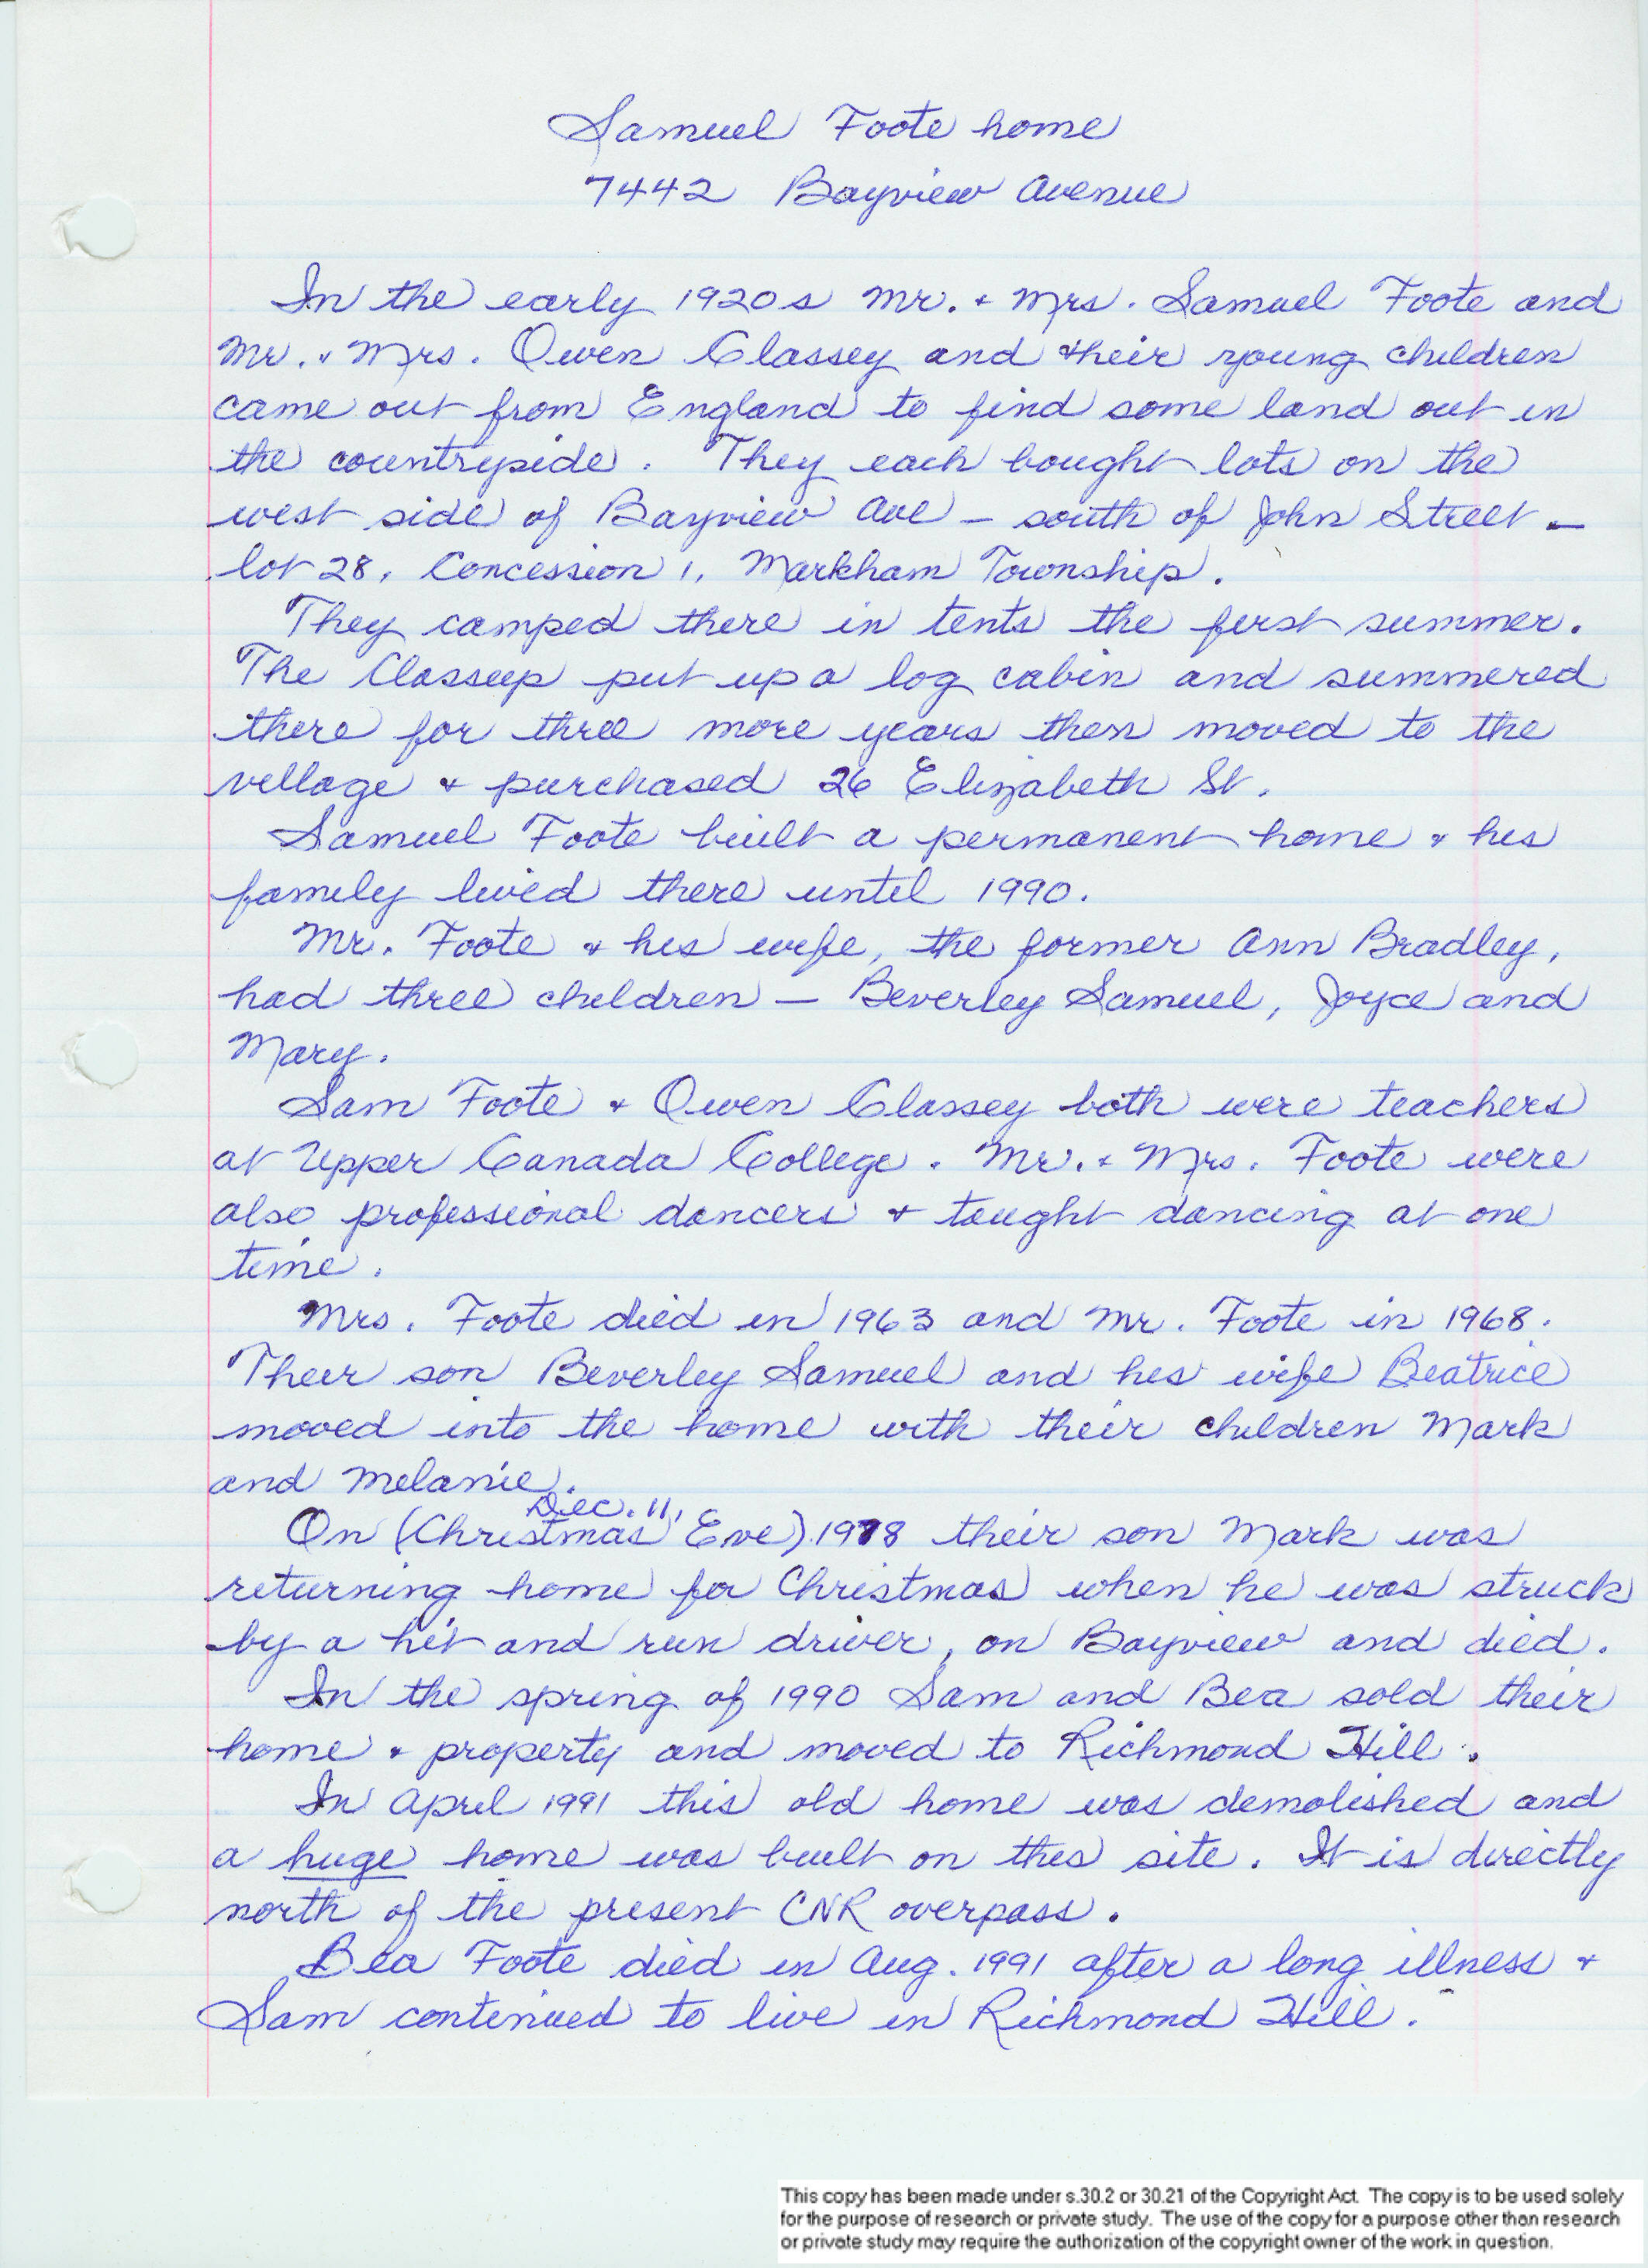 Samuel Foote home
7442 Bayview Avenue
In the early 1920s Mr. & Mrs. Samuel Foote and
Mr. & Mrs. Owen Classey and their young children
came out from England to find some land out in
the countryside. They each bought lots on the
west side of Bayview Ave - south of John Street -
lot 28, Concession 1, Markham Township.
They camped there in tents the first summer.
The Classeys put up a log cabin and summered
there for three more years then moved to the
village & purchased 26 Elizabeth St.
Samuel Foote built a permanent home & his
family lived there until 1990.
Mr. Foote & his wife, the former Ann Bradley,
had three children - Beverley Samuel, Joyce and
Mary.
Sam Foote & Owen Classey both were teachers
at Upper Canada College. Mr. & Mrs. Foote were
also professional dancers & taught dancing at one
time.
Mrs. Foote died in 1963 and Mr. Foote in 1968.
Their son Beverley Samuel and his wife Beatrice
moved into the home with their children Mark
and Melanie.
Dec. 11,
On (Christmas Eve) 1978 their son Mark was
returning home for Christmas when he was struck
by a hit and run driver, on Bayview and died.
In the spring of 1990 Sam and Bea sold their
home & property and moved to Richmond Hill.
In April 1991 this old home was demolished and
a huge home was built on this site. It is directly
north of the present CNR overpass.
Bea Foote died in Aug. 1991 after a long illness &
Sam continued to live in Richmond Hill.
This copy has been made under s.30.2 or 30.21 of the Copyright Act. The copy is to be used solely
for the purpose of research or private study. The use of the copy for a purpose other than research
or private study may require the authorization of the copyright owner of the work in question.